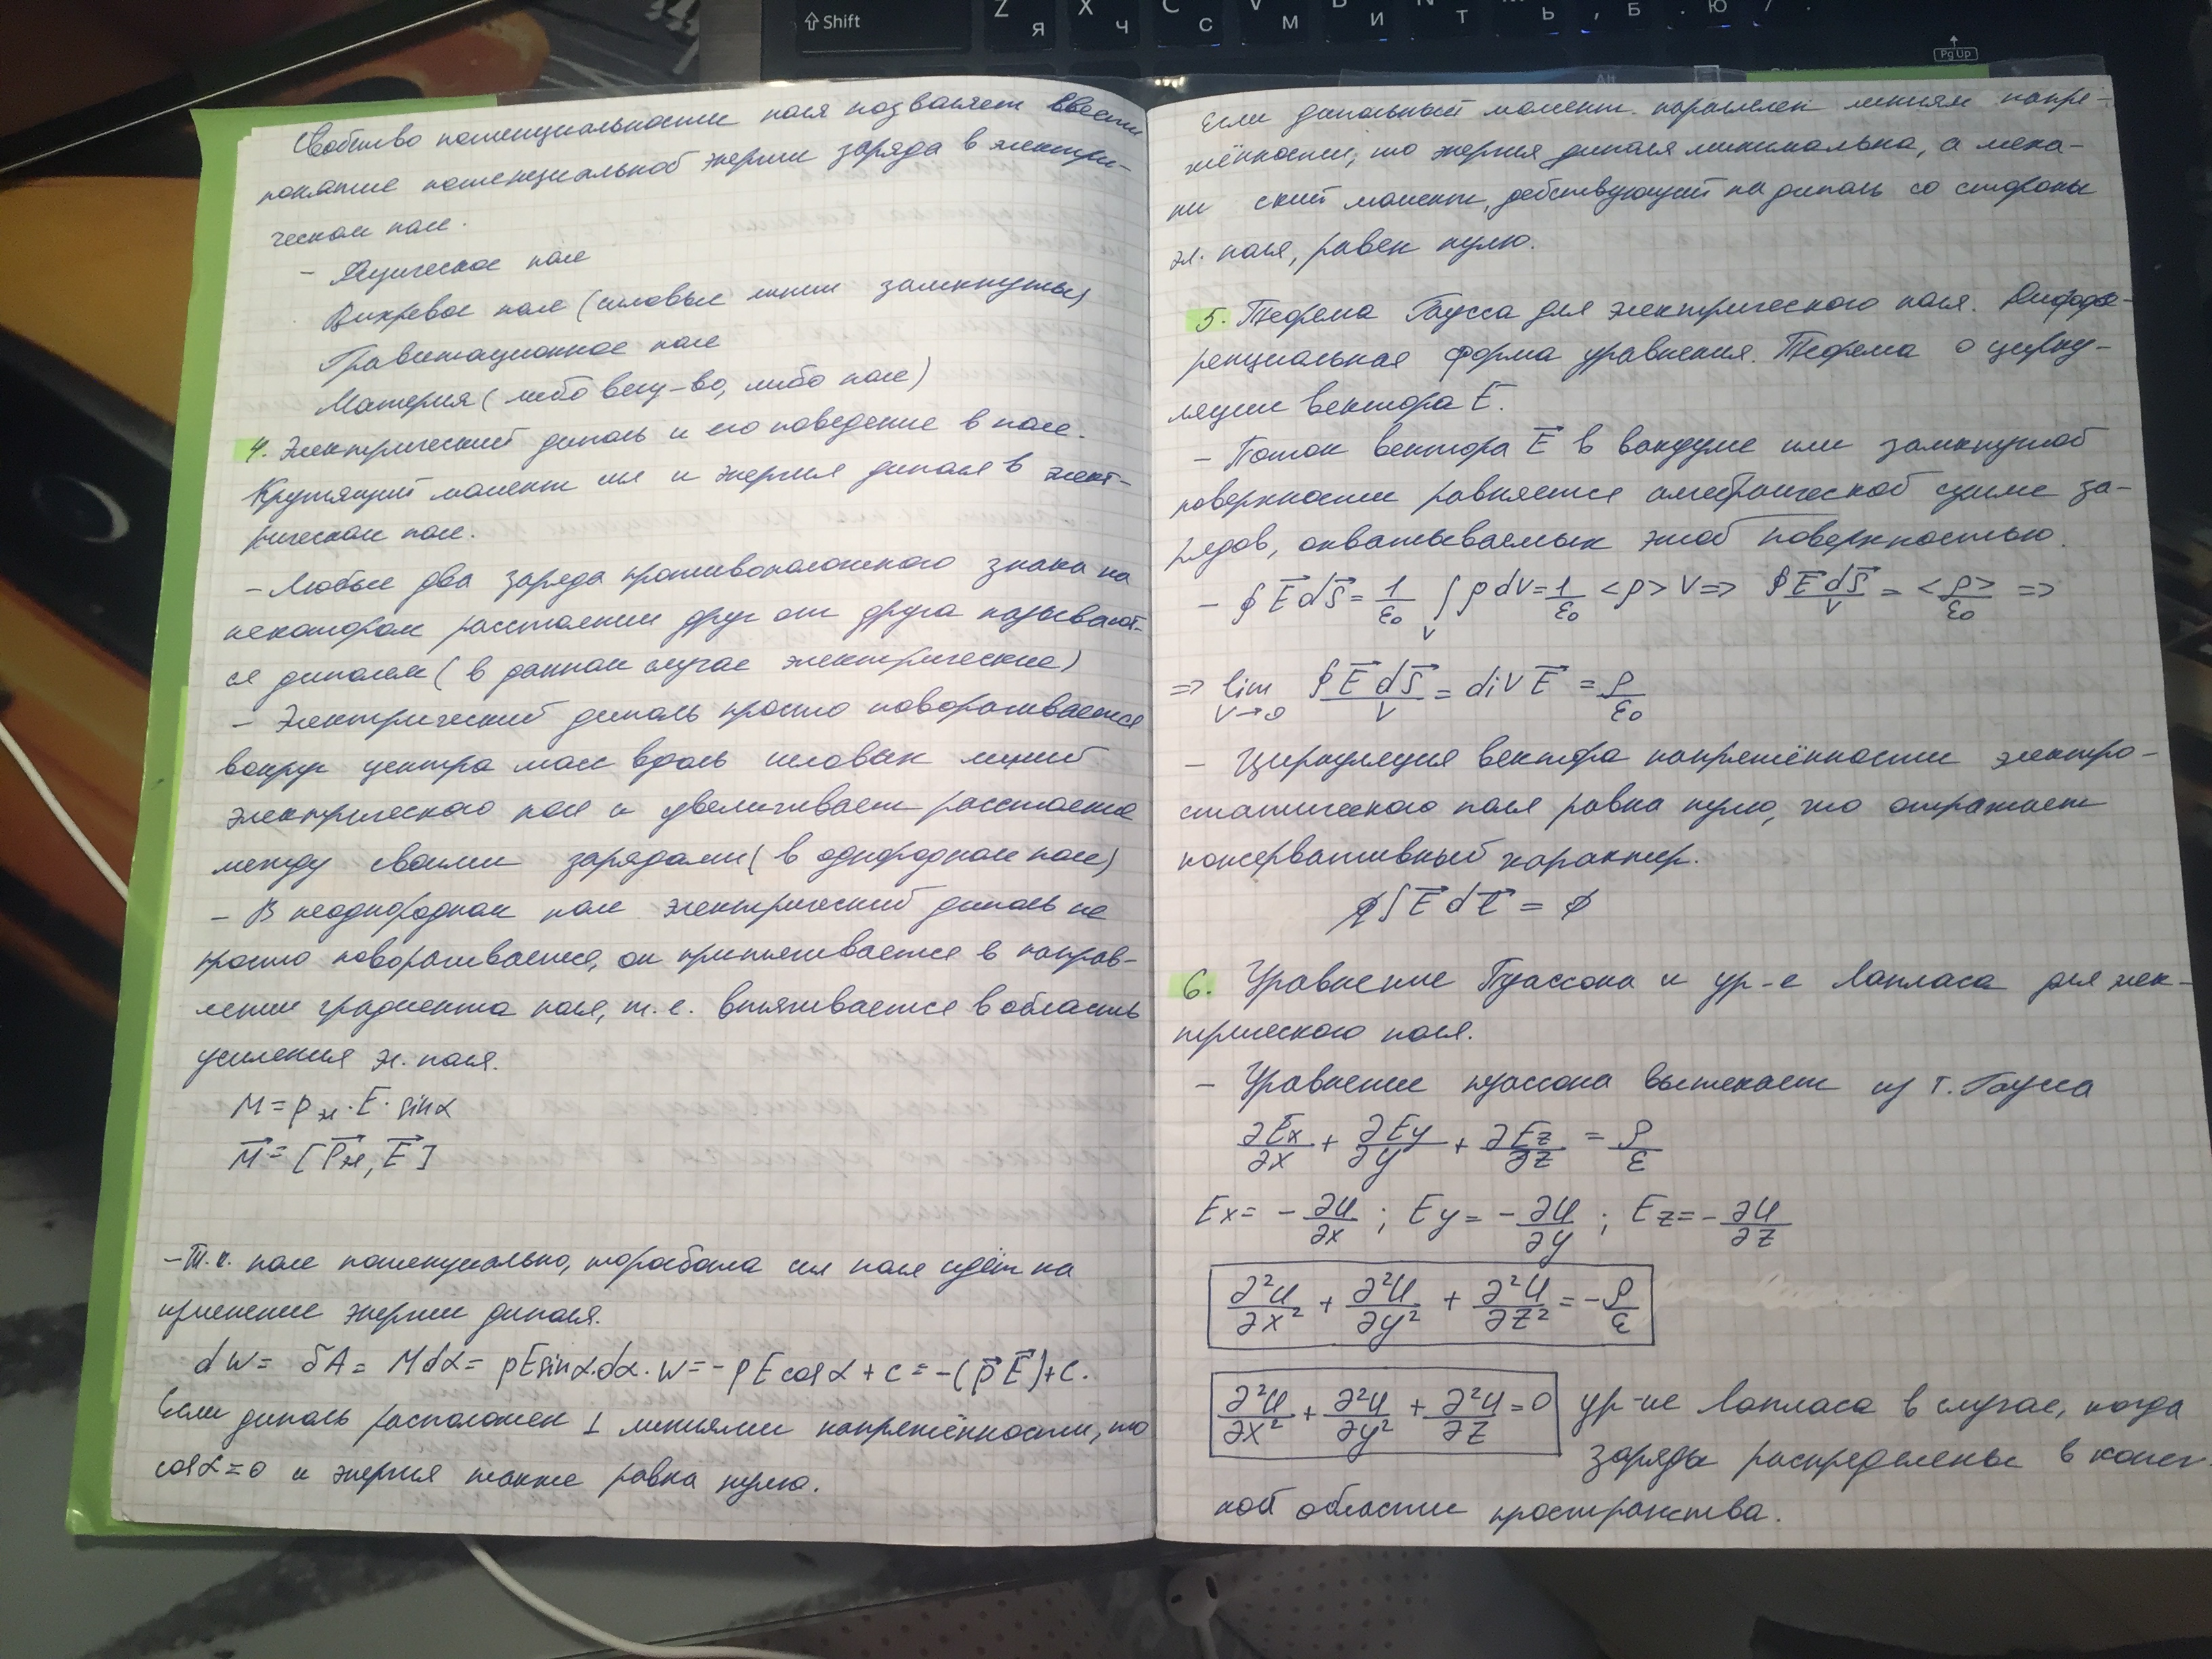 Shift
Z Я
X Ч
C С
V М
И
Т
Ь
, Б
. Ю
/ .
Alt
Pg Up
Свойство потенциальности поля позволяет ввести
понятие потенциальной энергии заряда в электри-
ческом поле.
- Физическое поле
Вихревое поле (силовые линии замкнуты)
Гравитационное поле
Материя (либо вещ-во, либо поле)
4. Электрический диполь и его поведение в поле.
Крутящий момент сил и энергия диполя в элект-
рическом поле.
- Любые два заряда противоположного знака на
некотором расстоянии друг от друга называют-
ся диполем (в данном случае электрические)
- Электрический диполь просто поворачивается
вокруг центра масс вдоль силовых линий
электрического поля и увеличивает расстояние
между своими зарядами (в однородном поле)
- В неоднородном поле электрический диполь не
просто поворачивается, он притягивается в направ-
лении градиента поля, т.е. втягивается в область
усиления эл. поля.
M = p эл · E · sinα
M⃗ = [P⃗эл, E⃗]
- Т.к. поле потенциально, то работа сил поля идёт на
изменение энергии диполя.
dW = δA = Mdα = pEsinα·dα. W = -pEcosα + c = -(p⃗E⃗)+c.
Если диполь расположен ⊥ линиями напряжённости, то
cosα = 0 и энергия также равна нулю.
Если дипольный момент параллелен линиям напря-
жённости, то энергия диполя минимальна, а меха-
ни ский момент, действующий на диполь со стороны
эл. поля, равен нулю.
5. Теорема Гаусса для электрического поля. Диффе-
ренциальная форма уравнения. Теорема о цирку-
ляции вектора E.
- Поток вектора E⃗ в вакууме или замкнутой
поверхности равняется алгебраической сумме за-
рядов, охватываемых этой поверхностью.
- ∮ E⃗dS⃗ = 1/ε₀ ∫_V ρ dV = 1/ε₀ <ρ> V => ∮E⃗dS⃗/V = <ρ>/ε₀ =>
=> lim V→0 ∮E⃗dS⃗/V = div E⃗ = ρ/ε₀
- Циркуляция вектора напряжённости электро-
статического поля равна нулю, что отражает
консервативный характер.
∮E⃗dℓ⃗ = 0
6. Уравнение Пуассона и ур-е Лапласа для элек-
трического поля.
- Уравнение Пуассона вытекает из т. Гаусса
∂Ex/∂x + ∂Ey/∂y + ∂Ez/∂z = ρ/ε
Ex = - ∂U/∂x ; Ey = - ∂U/∂y ; Ez = - ∂U/∂z
∂²U/∂x² + ∂²U/∂y² + ∂²U/∂z² = - ρ/ε
∂²U/∂x² + ∂²U/∂y² + ∂²U/∂z = 0 ур-ие Лапласа в случае, когда
заряды распределены в конеч-
ной области пространства.